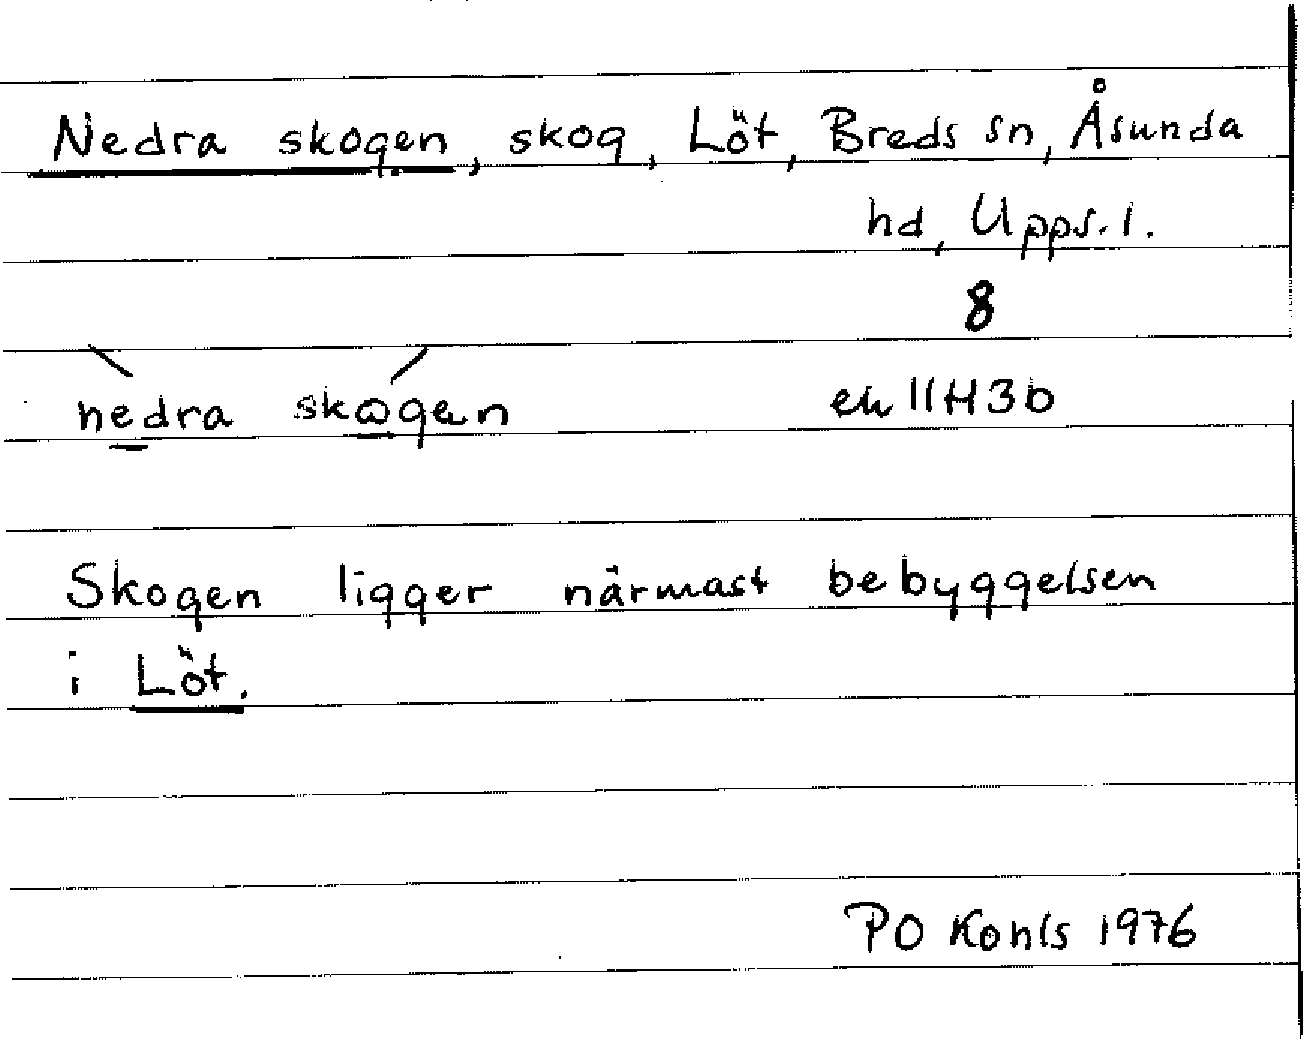 Nedra skogen, skog, Löt, Breds sn, Åsunda
hd, Upps. l.
8
nedra skogen ek 11H3b
Skogen ligger närmast bebyggelsen
i Löt.
PO Konls 1976